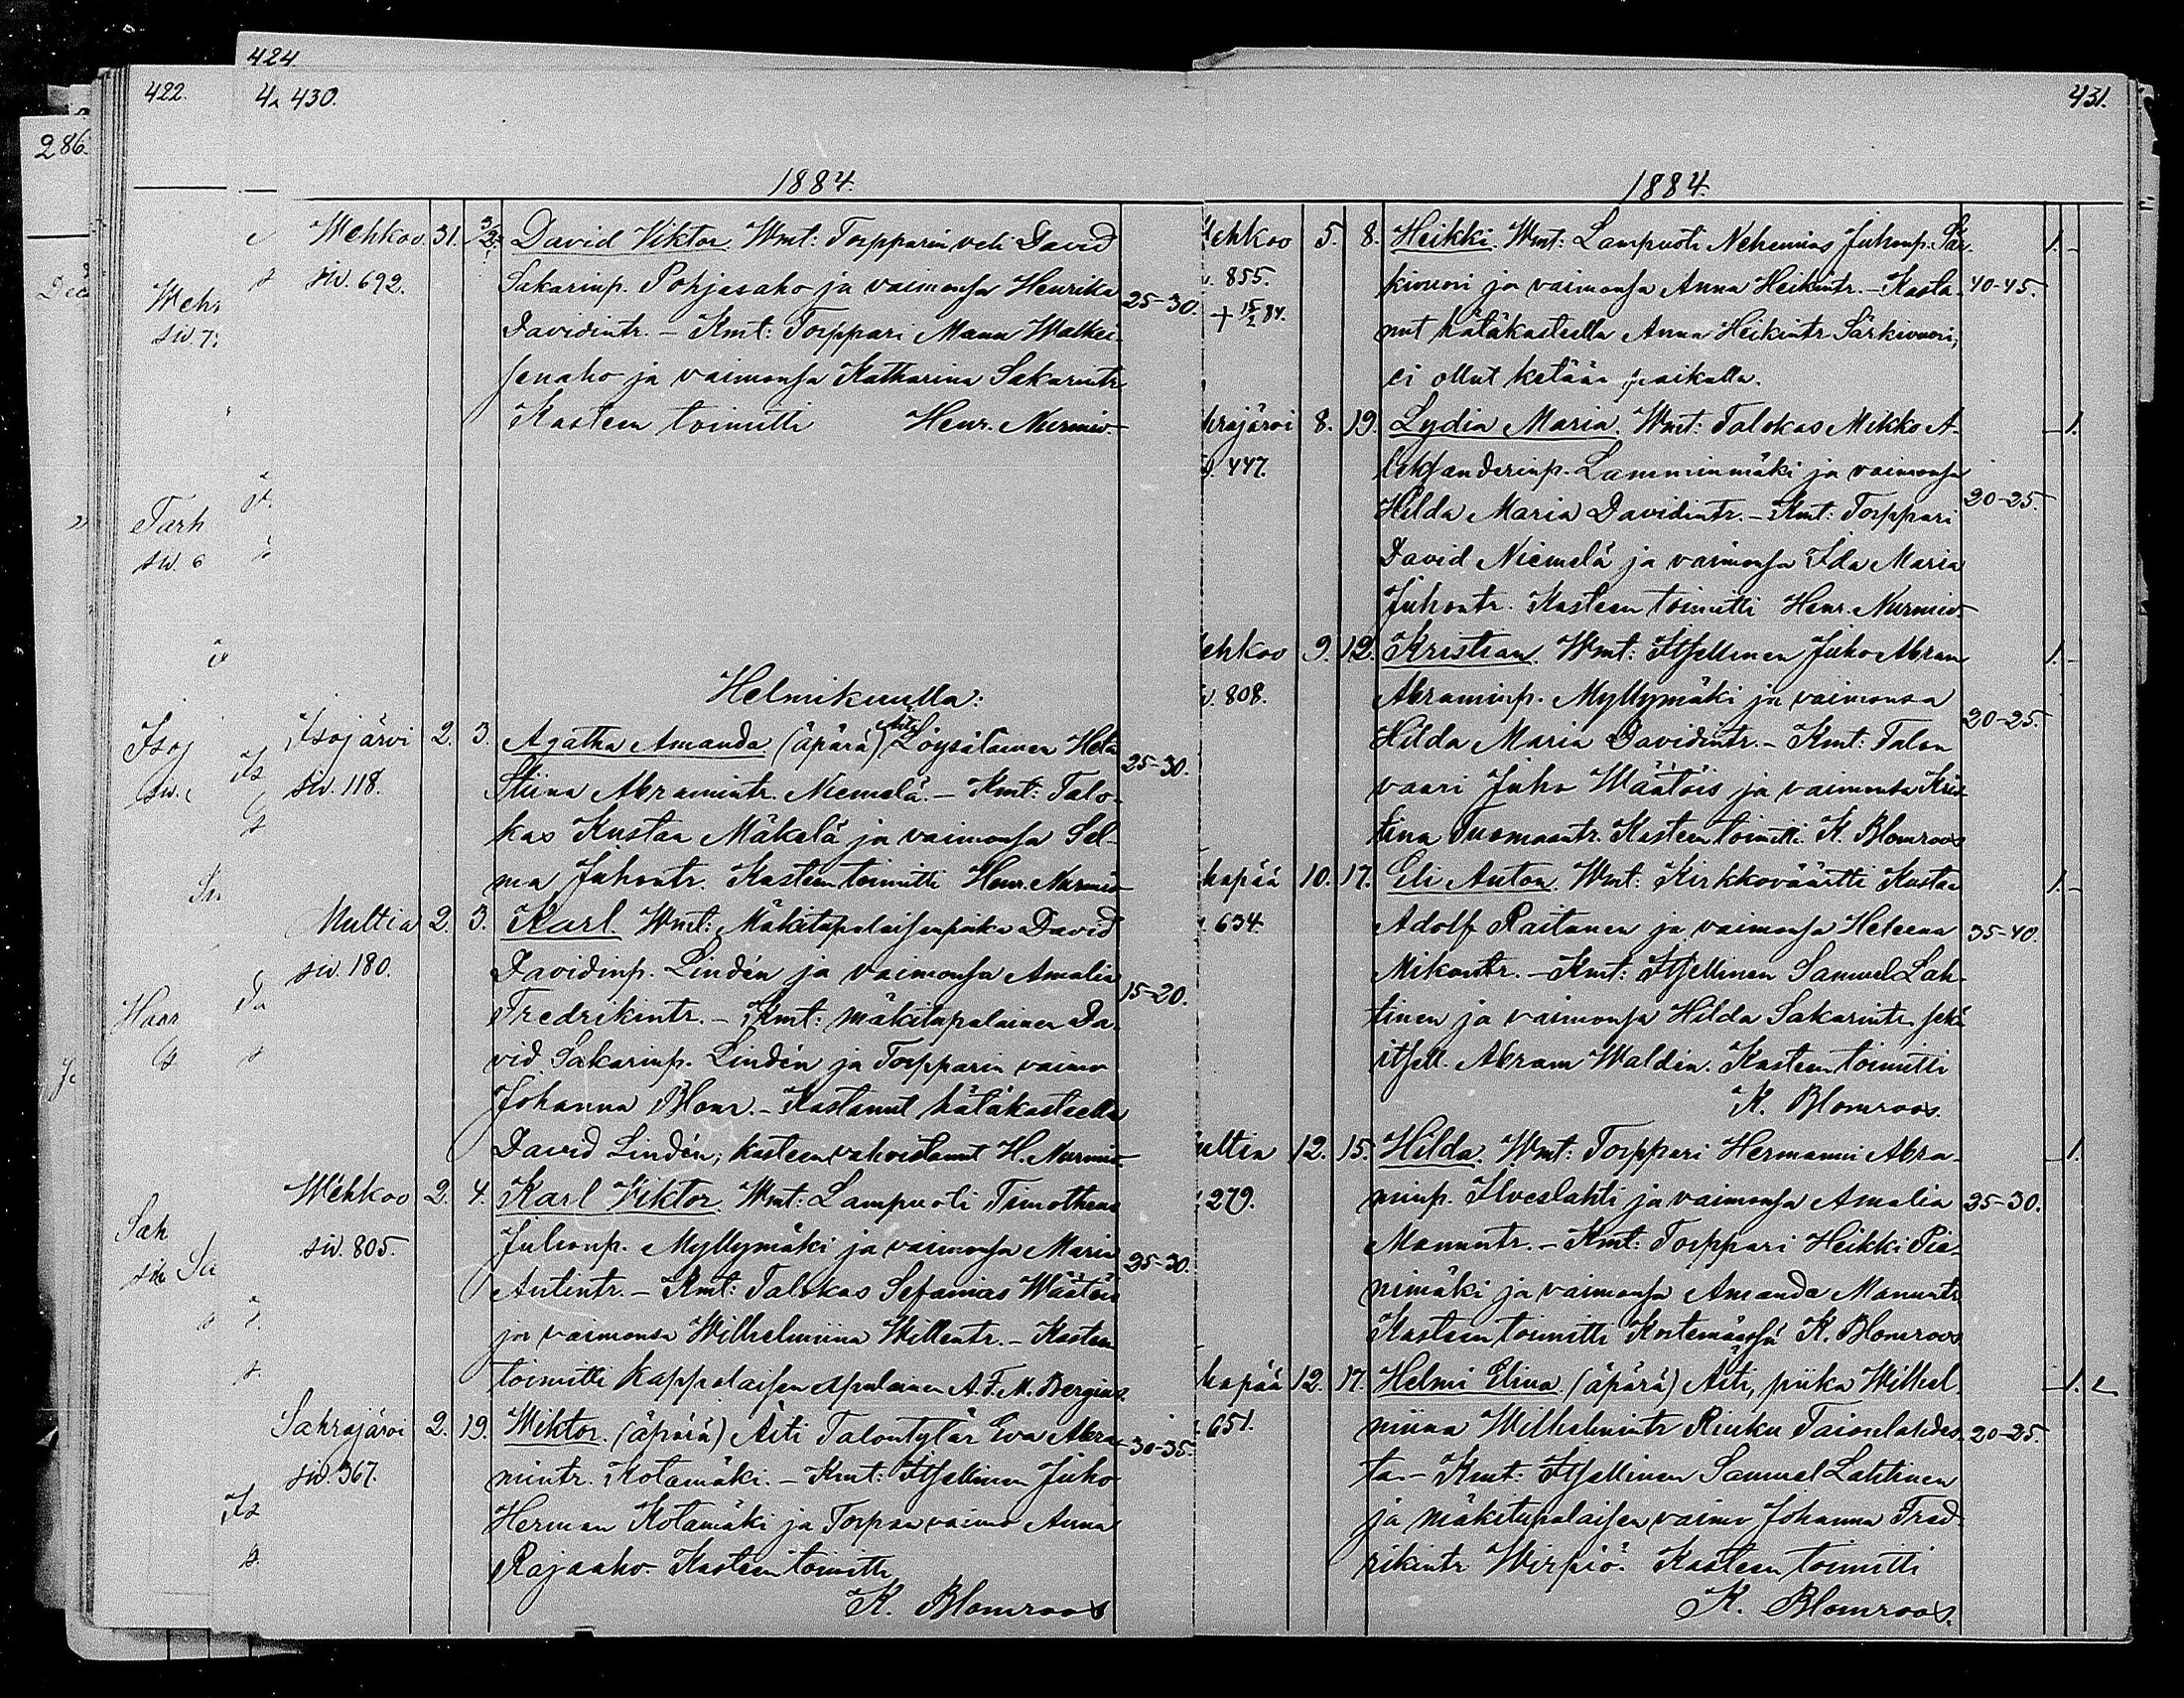 424.
422.
430.
286.
431.
1884.
Wehkoo 31. 3/2. David Viktor. Wmt: Torpparin veli David
siv. 692. Sakarinp. Pohjasaho ja vaimonsa Henrika 25-30.
Davidintr. – Kmt: Torppari Manu Walkei-
senaho ja vaimonsa Katharina Sakarintr.
Kasteen toimitti Henr. Nurmio.
Helmikuulla:
Isojärvi 2. 3. Agatha Amanda (äpärä) äiti Löysäläinen Heta
siv. 118. Stiina Abramintr. Niemelä. – Kmt: Talo- 25-30.
kas Kustaa Mäkelä ja vaimonsa Sel-
ma Juhontr. Kasteen toimitti Henr. Nurmio
Multia 2. 3. Karl. Wmt: Mäkitupalaisenpoika David
siv. 180. Davidinp. Lindén ja vaimonsa Amalia 15-20.
Fredrikintr. – Kmt: mäkitupalainen Da-
vid Sakarinp. Lindén ja Torpparin vaimo
Johanna Blom. – Kastanut hätäkasteella
David Lindén; kasteen vahvistanut H. Nurmio
Wehkoo 2. 4. Karl Viktor. Wmt: Lampuoti Timotheus
siv. 805. Juhonp. Myllymäki ja vaimonsa Maria 25-30.
Antintr. – Kmt: Talokas Sefanias Wäätäis
ja vaimonsa Wilhelmiina Willentr. – Kasteen
toimitti Kappalaisen apulainen A. F. M. Bergius.
Sahrajärvi 2. 19. Wiktor. (äpärä) Äiti Talontytär Eva Abra- 30-35.
siv. 367. mintr. Kotamäki. – Kmt: Itsellinen Juho
Herman Kotamäki ja Torpan vaimo Anna
Rajaaho. Kasteen toimitti
K. Blomroos
1884.
ehkoo 5. 8. Heikki. Wmt: Lampuoti Nehemias Juhonp. Sär- 1. –
855. kivuori ja vaimonsa Anna Heikintr. – Kasta- 40-45.
+ 15/2 84. nut hätäkasteella Anna Heikintr. Särkivuori;
ei ollut ketään paikalla.
hrajärvi 8. 19. Lydia Maria. Wmt: Talokas Mikko A- – 1.
447. leksanderinp. Lamminmäki ja vaimonsa
Hilda Maria Davidintr. – Kmt: Torppari 20-25.
David Niemelä ja vaimonsa Ida Maria
Juhontr. Kasteen toimitti Henr. Nurmio
ehkoo 9. 12. Kristian. Wmt: Itsellinen Juho Abram 1. –
808. Abraminp. Myllymäki ja vaimonsa
Hilda Maria Davidintr. – Kmt: Talon 20-25.
vaari Juho Wäätäis ja vaimonsa Kris-
tina Tuomaantr. Kasteen toimitti K. Blomroos
hapää 10. 17. Eli Anton. Wmt: Kirkkoväärtti Kustaa 1. –
634. Adolf Raitanen ja vaimonsa Heleena 35-40.
Mikontr. – Kmt: Itsellinen Samuel Lah-
tinen ja vaimonsa Hilda Sakarintr. sekä
itsell. Abram Waldén. Kasteen toimitti
K. Blomroos.
ultia 12. 15. Hilda. Wmt: Torppari Hermanni Abra- – 1.
279. minp. Ilveslahti ja vaimonsa Amalia 25-30.
Manuntr. – Kmt: Torppari Heikki Pie-
nimäki ja vaimonsa Amanda Manuntr.
Kasteen toimitti K. Blomroos
hapää 12. 17. Helmi Elina. (äpärä) Äiti, piika Wilhel- – 1.
651. miina Wilhelmintr. Rinku Taionlahdes- 20-25.
ta. – Kmt: Itsellinen Samuel Lahtinen
ja mäkitupalaisen vaimo Johanna Fred-
rikintr. Wirpiö. Kasteen toimitti
K. Blomroos.